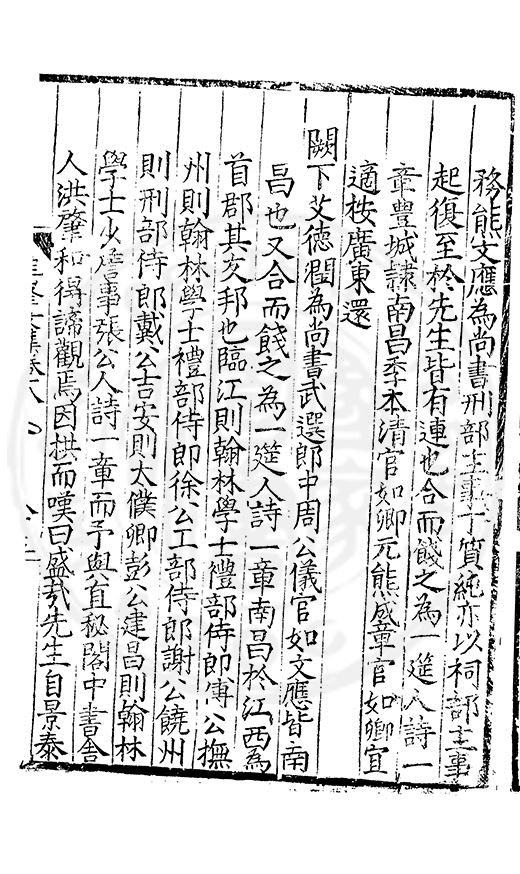 務熊文應為尚書刑部主事丁質純亦以祠部主事
起復至於先生皆有連也合而餞之為一筵人詩一
章豐城隷南昌李本清官如卿元熊成章官如卿宜
適按廣東還
闕下艾德潤為尚書武選郎中周公儀官如文應皆南
昌也又合而餞之為一筵人詩一章南昌於江西為
首郡其亥邦也臨江則翰林學士禮部侍郎傅公撫
州則翰林學士禮部侍郎徐公工部侍郎謝公饒州
則刑部侍郎戴公吉安則太僕卿彭公建昌則翰林
學士少詹事張公人詩一章而予與直秘閣中書舍
人洪肇和得諦觀焉因拱而嘆曰盛哉先生自景泰